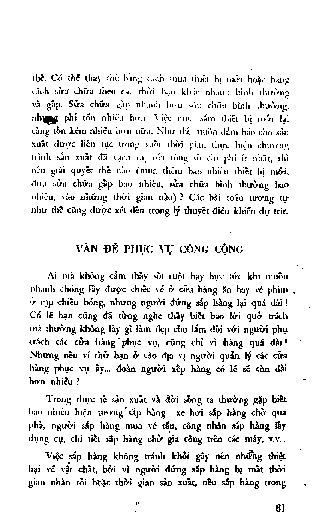 thế. Có thể thay thế bằng cách mua thiết bị mới hoặc bằng
cách sửa chữa theo các thời hạn khác nhau: bình thường
và gấp. Sửa chữa gấp nhanh hơn sửa chữa bình thường,
nhưng phí tổn nhiều hơn. Việc mua sắm thiết bị mới lại
càng tốn kém nhiều hơn nữa. Như thế muốn đảm bảo cho sản
xuất được liên tục trong suốt thời gian, thực hiện chương
trình sản xuất đã vạch ra, với tổng số chi phí ít nhất, thì
nên giải quyết thế nào (mua thêm bao nhiêu thiết bị mới,
đưa sửa chữa gấp bao nhiêu, sửa chữa bình thường bao
nhiêu, vào những thời gian nào)? Các bài toán tương tự
như thế cũng được xét đến trong lý thuyết điều khiển dự trữ.
VẤN ĐỀ PHỤC VỤ CÔNG CỘNG
Ai mà không cảm thấy sốt ruột hay bực tức khi muốn
nhanh chóng lấy được chiếc vé ở cửa hàng ăn hay vé phim
ở rạp chiếu bóng, nhưng người đứng sắp hàng lại quá dài!
Có lẽ bạn cũng đã từng nghe thấy biết bao lời quở trách
mà thường không lấy gì làm đẹp cho lắm đối với người phụ
trách các cửa hàng phục vụ, cũng chỉ vì hàng quá dài!
Nhưng nếu ví thử bạn ở vào địa vị người quản lý các cửa
hàng phục vụ ấy... đoàn người xếp hàng có lẽ sẽ còn dài
hơn nhiều?
Trong thực tế sản xuất và đời sống ta thường gặp biết
bao nhiêu hiện tượng sắp hàng: xe hơi sắp hàng chờ qua
phà, người sắp hàng mua vé tầu, công nhân sắp hàng lấy
dụng cụ, chi tiết sắp hàng chờ gia công trên các máy, v.v..
Việc sắp hàng không tránh khỏi gây nên những thiệt
hại về vật chất, bởi vì người đứng sắp hàng bị mất thời
gian nhàn rỗi hoặc thời gian sản xuất, nếu sắp hàng trong
61